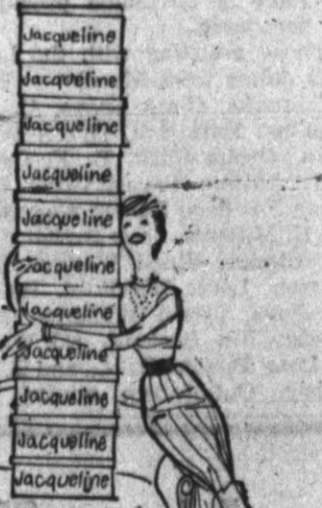 Jacqueline
Jacqueline
Jacqueline
Jacqueline
Jacqueline
Jacqueline
Jacqueline
Jacqueline
Jacqueline
Jacqueline
Jacqueline